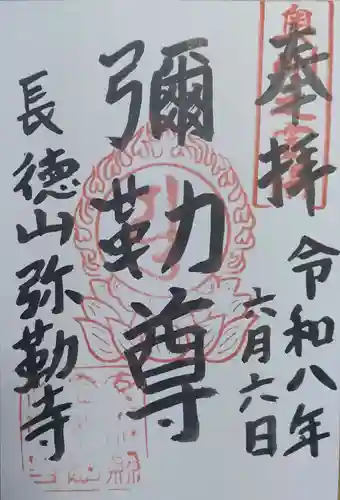 奉拝
令和八年
六月六日
彌勒尊
長徳山弥勒寺